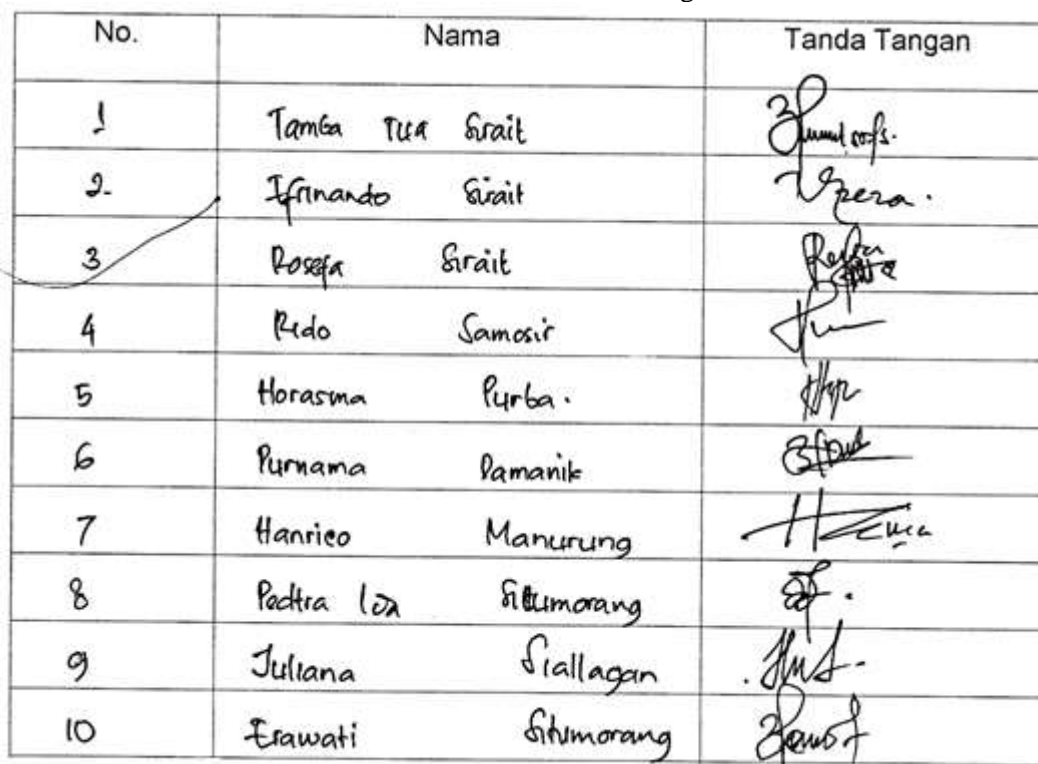 No. Nama Tanda Tangan
1 Tamba Tua Sirait
2. Ifrinando Sirait
3 Rosefa Sirait
4 Rido Samosir
5 Horasma Purba.
6 Purnama Damanik
7 Hanrico Manurung
8 Pedtra Situmorang
9 Juliana Siallagan
10 Erawati Situmorang